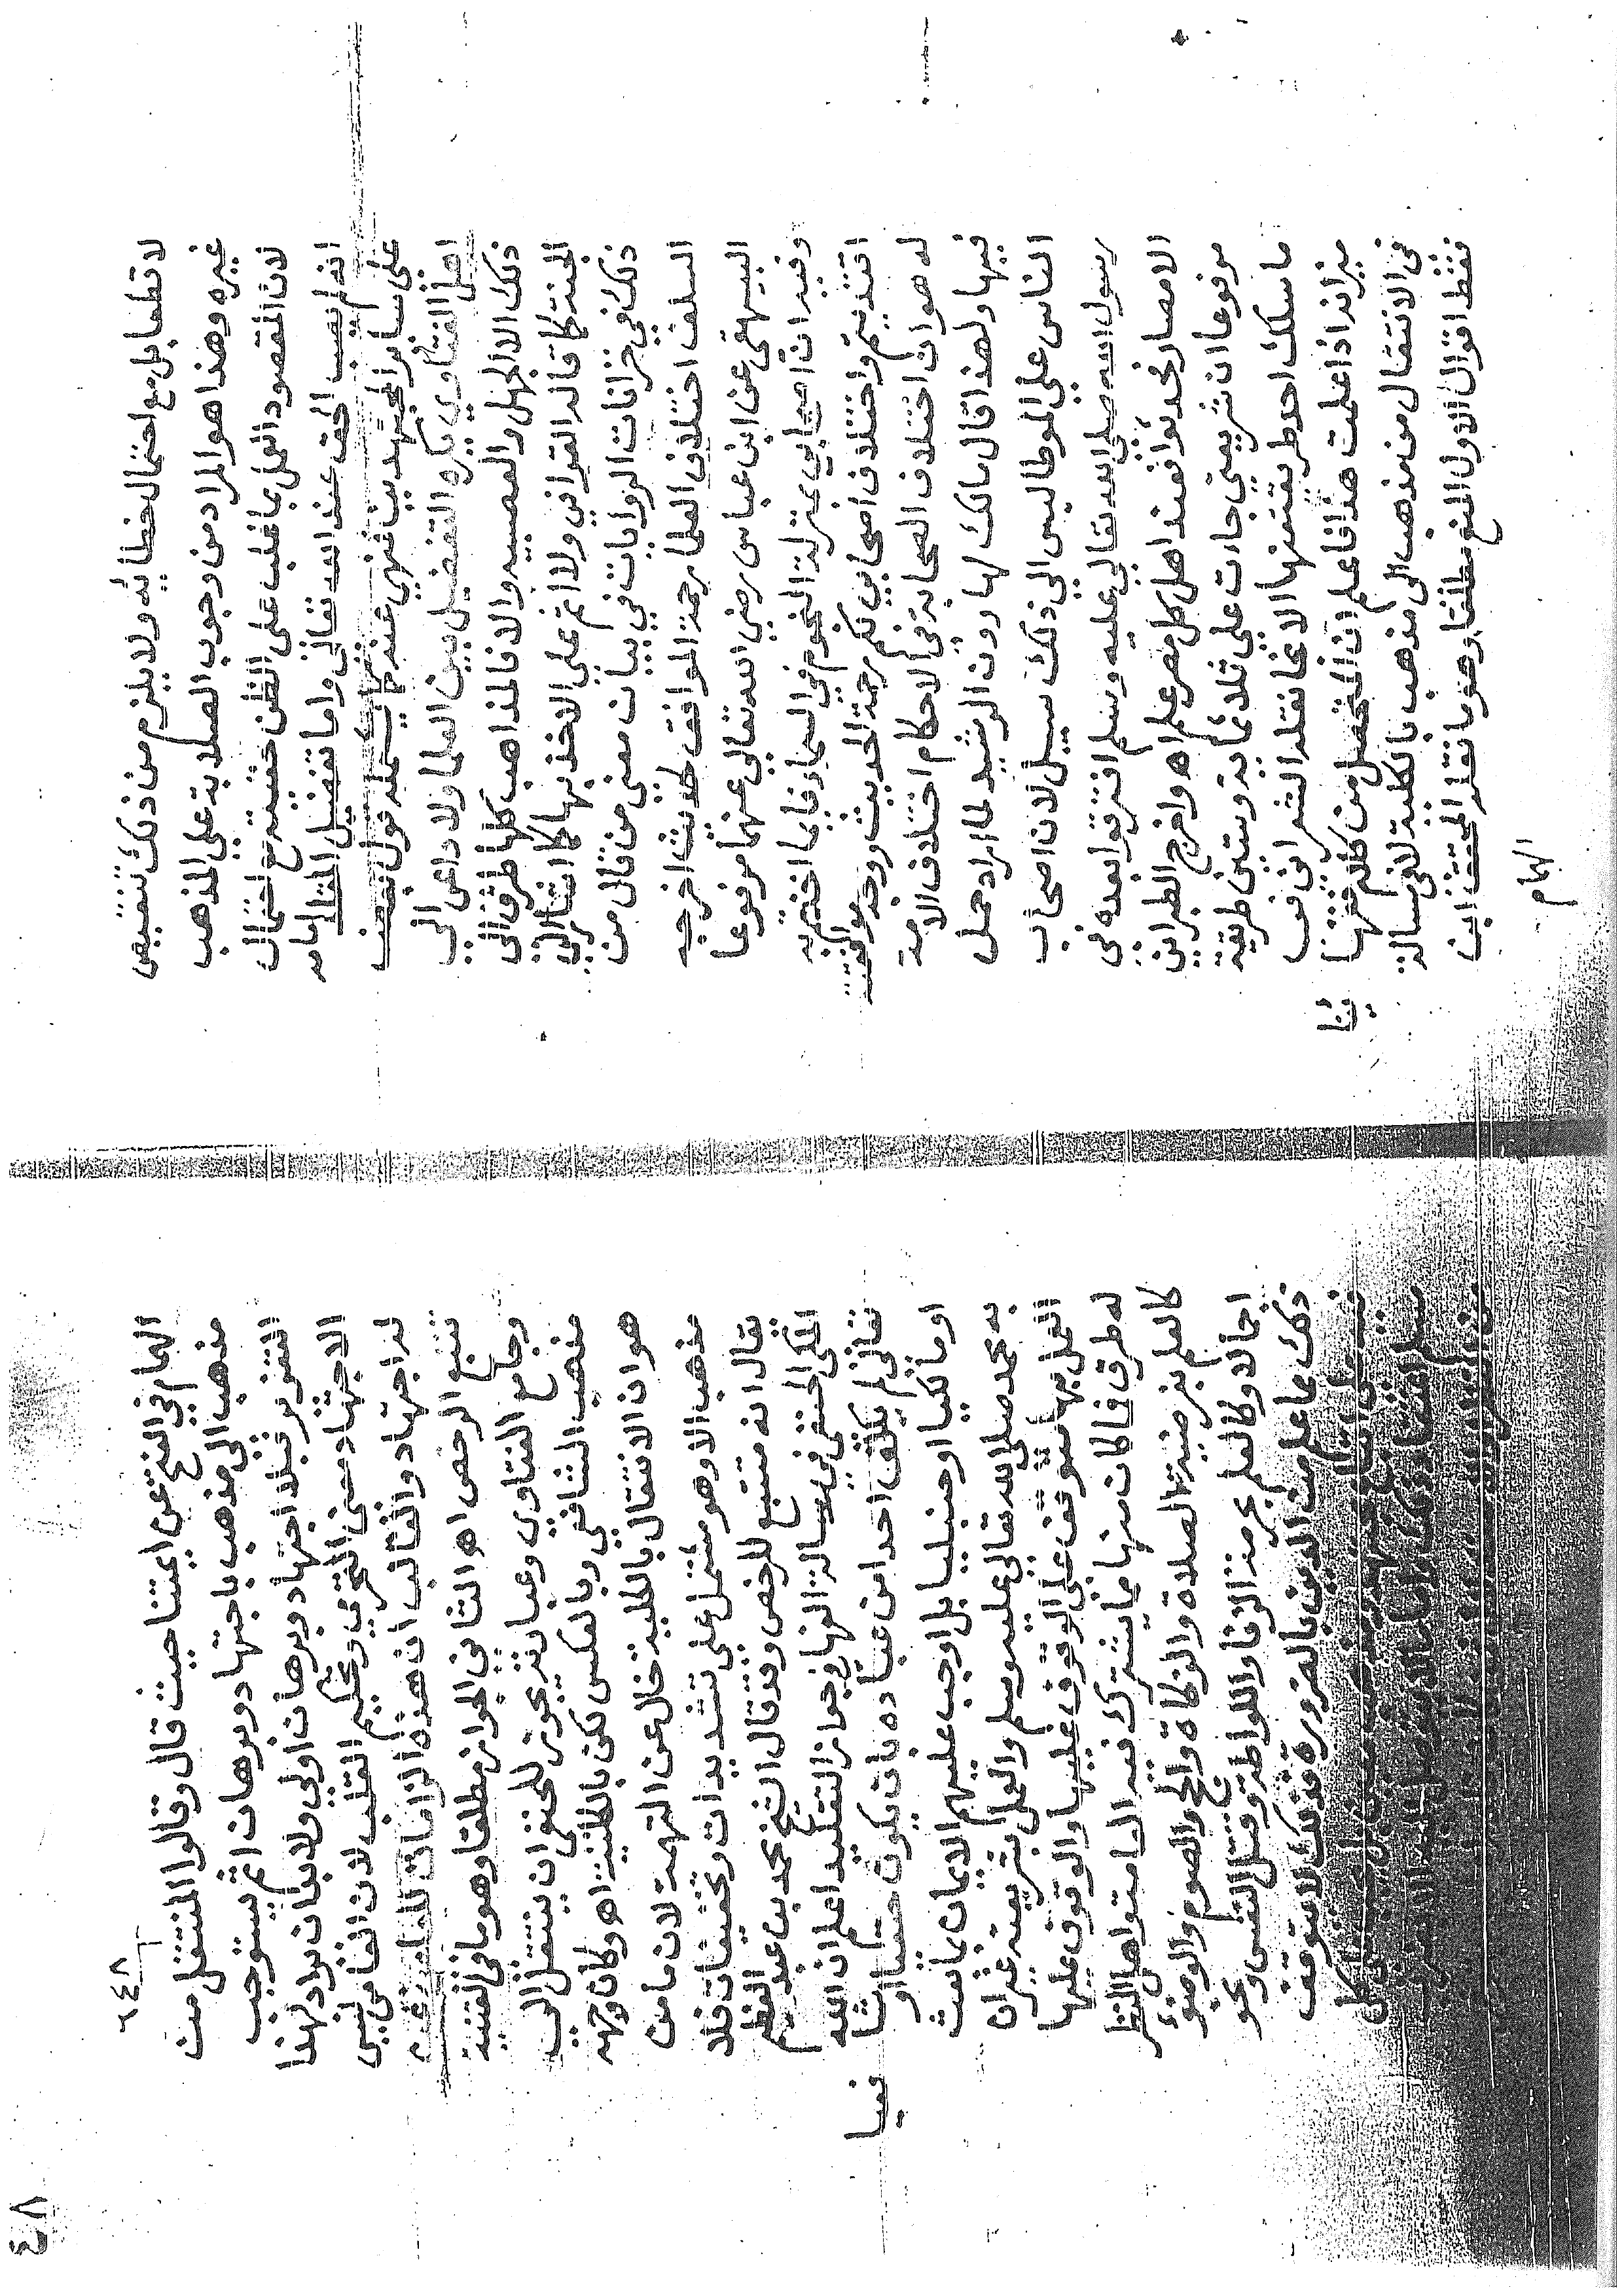 لا قطعا بل مع احتمال خطائه ولا يلزم من ذلك تنقيص
غيره وهذا هو المراد من وجوب الصلابة على المذهب
لان المقصود العمل بما غلب على الظن حقيته مع احتمال
انه لم يصب الحق عند الله تعالى واما تفضيل المقلد امامه
على سائر المجتهدين فهي عند
اهل الفتاوي يكره التفضيل بين العلما ولا داعي الى
ذلك الا الجهل والعصبية والا فالمذاهب كلها طرق الى
الجنة كما قاله القرافي ولا اثم على الاخذ بها كما اشار الى
ذلك في خزانات الروايات في بيان معنى من قال من
السلف اختلاف العلما رحمة الموافق لحديث اخرجه
البيهقي عن ابن عباس رضي الله تعالى عنهما مرفوعا
وفيه ان اصحابي بمنزلة النجوم في السماء فايما اخذتم به
اقتديتم واختلاف اصحابي لكم رحمة الحديث ووجه موافقته
له هو ان اختلاف الصحابة في الاحكام اختلاف الامة
فيها ولهذا قال مالك لهارون الرشيد لما اراد حمل
الناس على الموطا ليس الى ذلك سبيل لان اصحاب
رسول الله صلى الله تعالى عليه وسلم افترقوا بعده في
الامصار فحدثوا فعند اهل كل مصر علم اهـ واخرج الطبراني
مرفوعا ان شريعتي جاءت على ثلاثمائة وستين طريقة
ما سلك احد طريقة منها الا نجا نقله الشعراني نعما
ميزانه اذا علمت هذا فاعلم ان المتحصل من كلام فقهائنا
في الانتقال من مذهب الى مذهب بالكلية لا في مسالة
فقط اقوال الاول المنع مطلقا وهو ما نقله المحقق ابن
الهمام
٦٤٨
الهمام في الفتح عن ايمتنا حيث قال وقالوا المنتقل من
مذهب الى مذهب باجتهاد وبرهان اثم يستوجب
التعزير فبلا اجتهاد وبرهان اولى ولا بد ان يراد لهذا
الاجتهاد معنى التحري وتحكيم القلب لان العامي ليس
له اجتهاد والغالب ان هذه الزامات
تتبع الرخص اهـ الثاني الجواز مطلقا وهو ما في القنية
وجامع الفتاوى وعبارته يجوز للحنفي ان ينتقل الى
مذهب الشافعي وبالعكس لكن بالكلية اهـ وكان وجهه
هو ان الانتقال بالكلية خال عن التهمة لان ما من
مذهب الا وهو مشتمل على تشديدات وتخفيفات فلا
يقال انه متتبع للرخص وقد قال الشيخ محمد بن عبد العظيم
المكي الحنفي في رسالة الفها في جواز التقليد اعلم ان الله
تعالى لم يكلف احدا من عباده بان يكون حنفيا او شافعيا
او مالكيا او حنبليا بل اوجب عليهم الايمان بما بعث
به محمد صلى الله تعالى عليه وسلم والعمل بشريعته غير ان
العمل بها متوقف على الوقوف عليها والوقوف عليها
له طرق فما كان منها مما يشترك فيه العامة واهل النظر
كالعلم بفرضية الصلاة والزكاة والحج والصوم والوضوء
اجمالا وكالعلم بحرمة الزنا واللواطة وقتل النفس ونحو
ذلك مما علم من الدين بالضرورة فذلك لا يتوقف